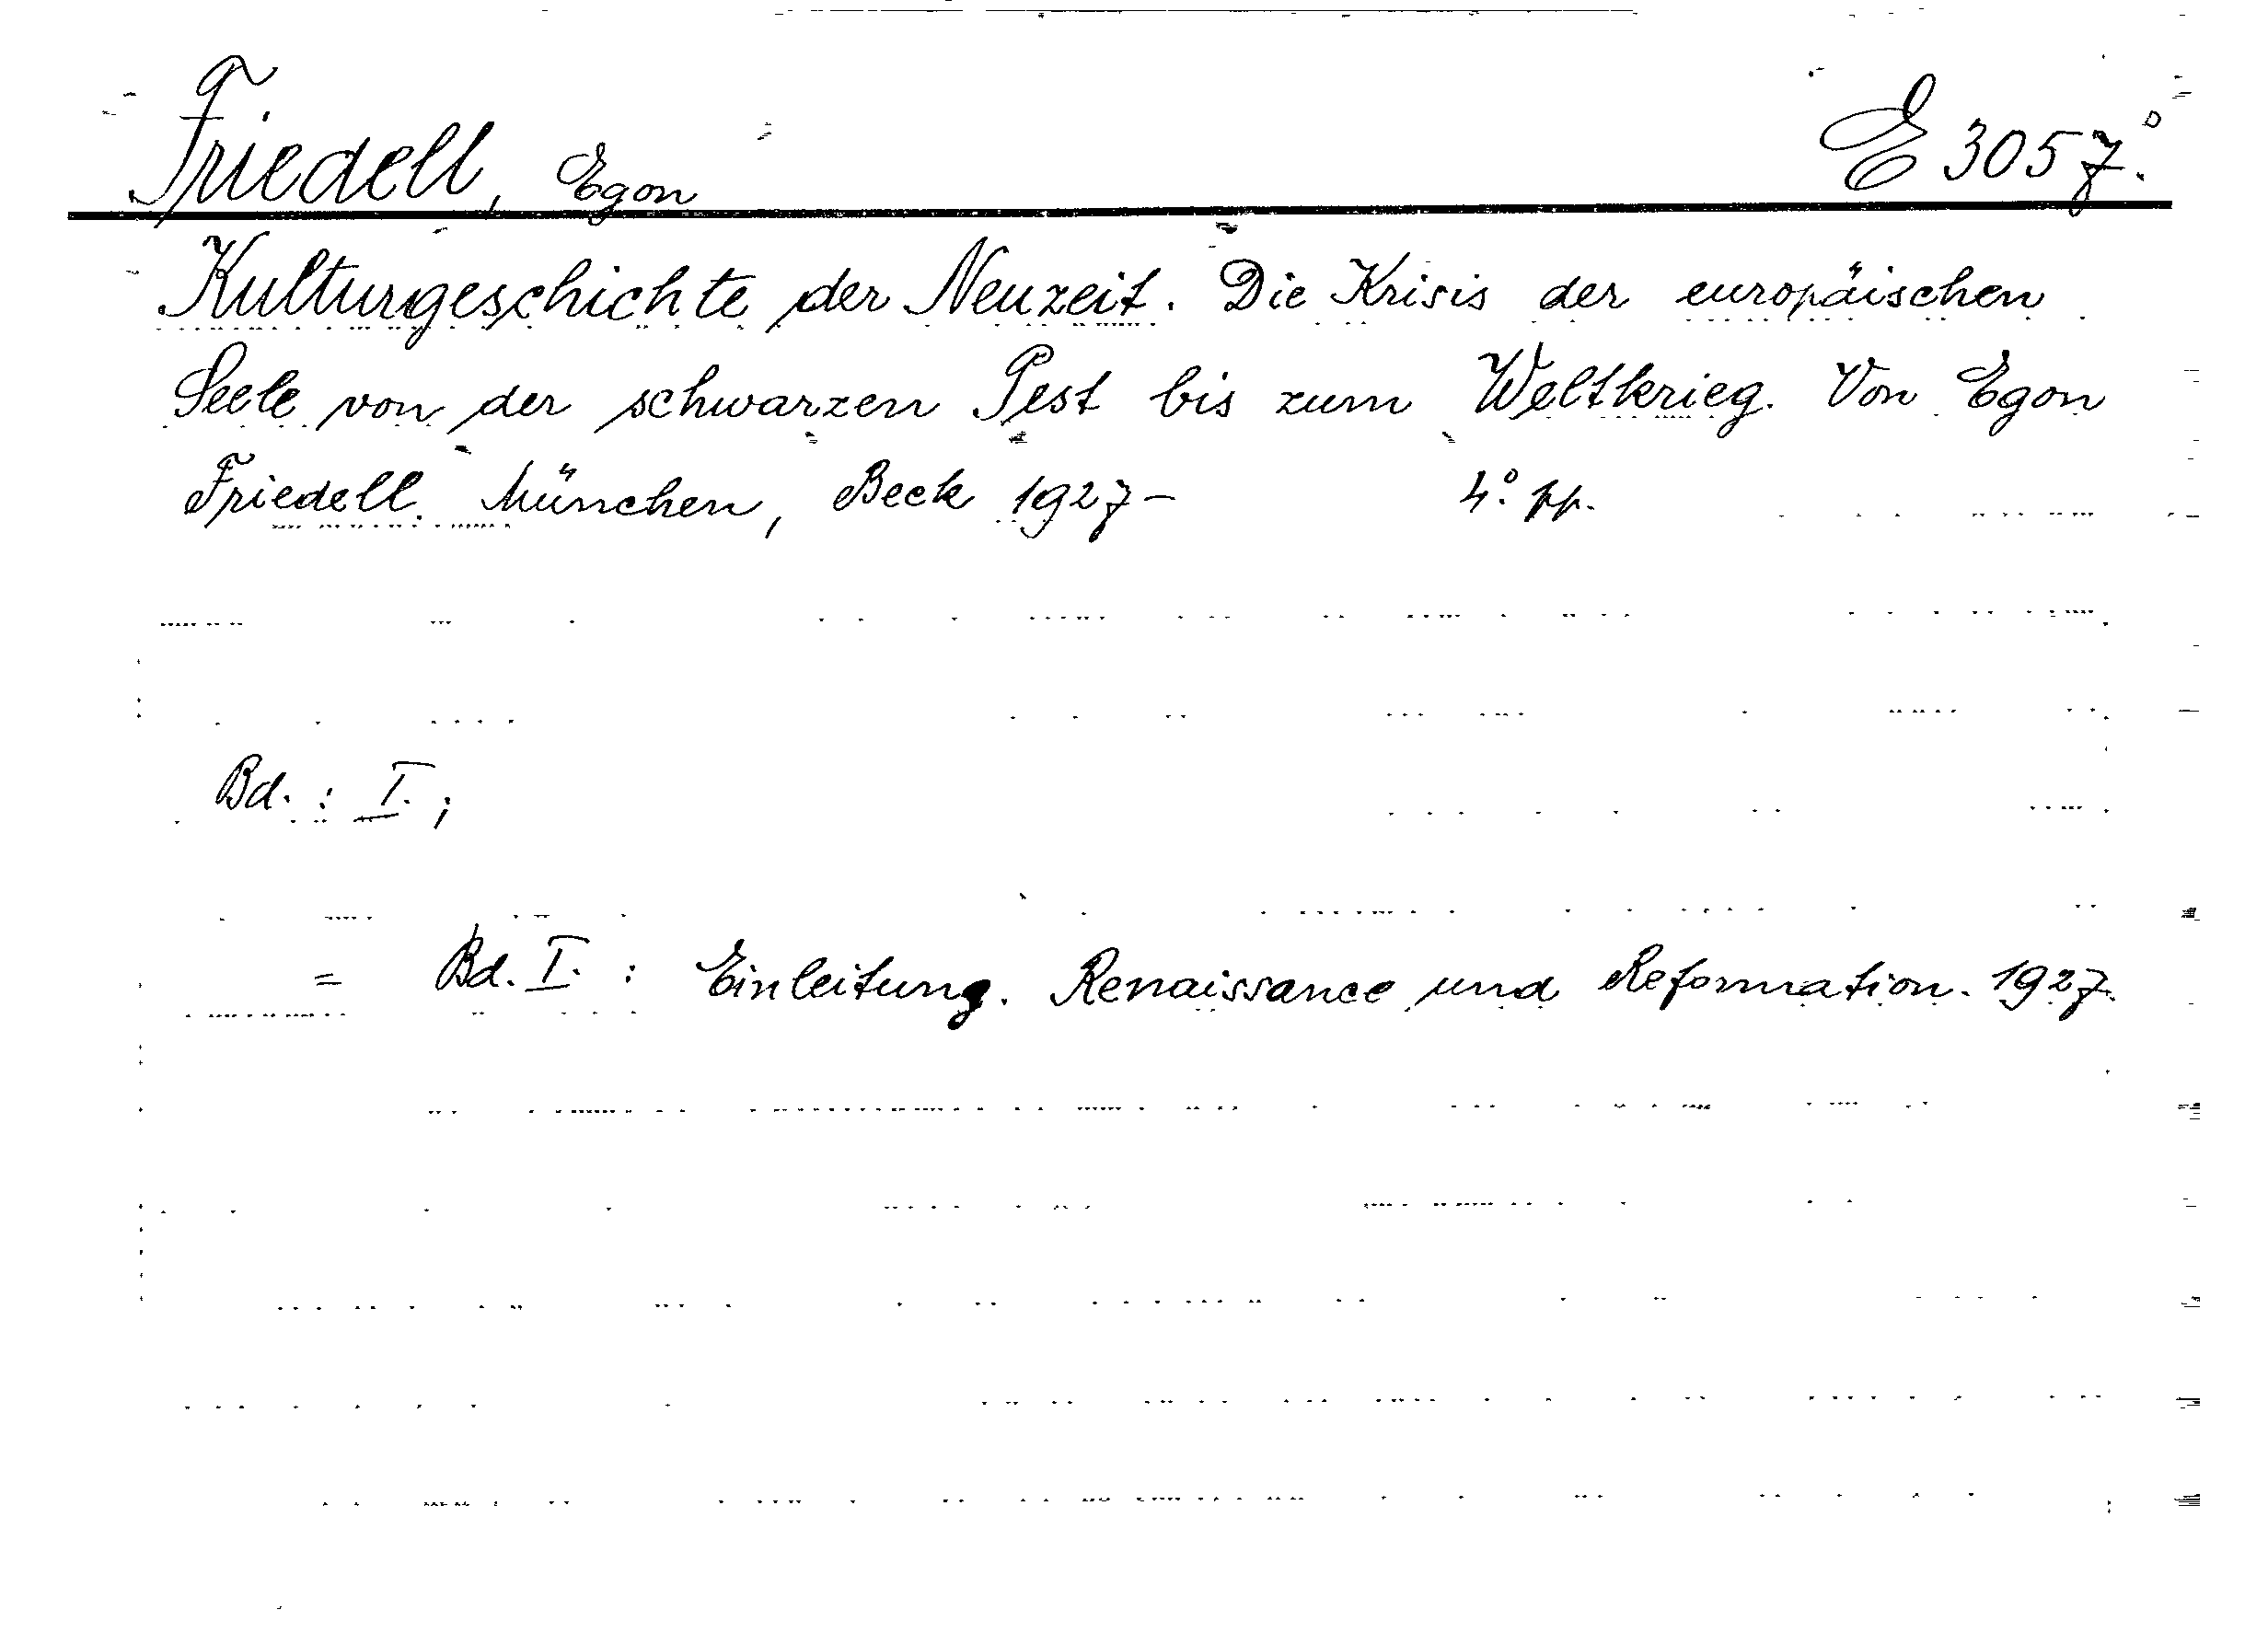 Friedell, Egon E 3057.°
Kulturgeschichte der Neuzeit. Die Krisis der europäischen
Seele von der schwarzen Pest bis zum Weltkrieg. Von Egon
Friedell. München, Beck 1927– 4.° pp.
Bd. : I. ;
= Bd. I. : Einleitung. Renaissance und Reformation. 1927.